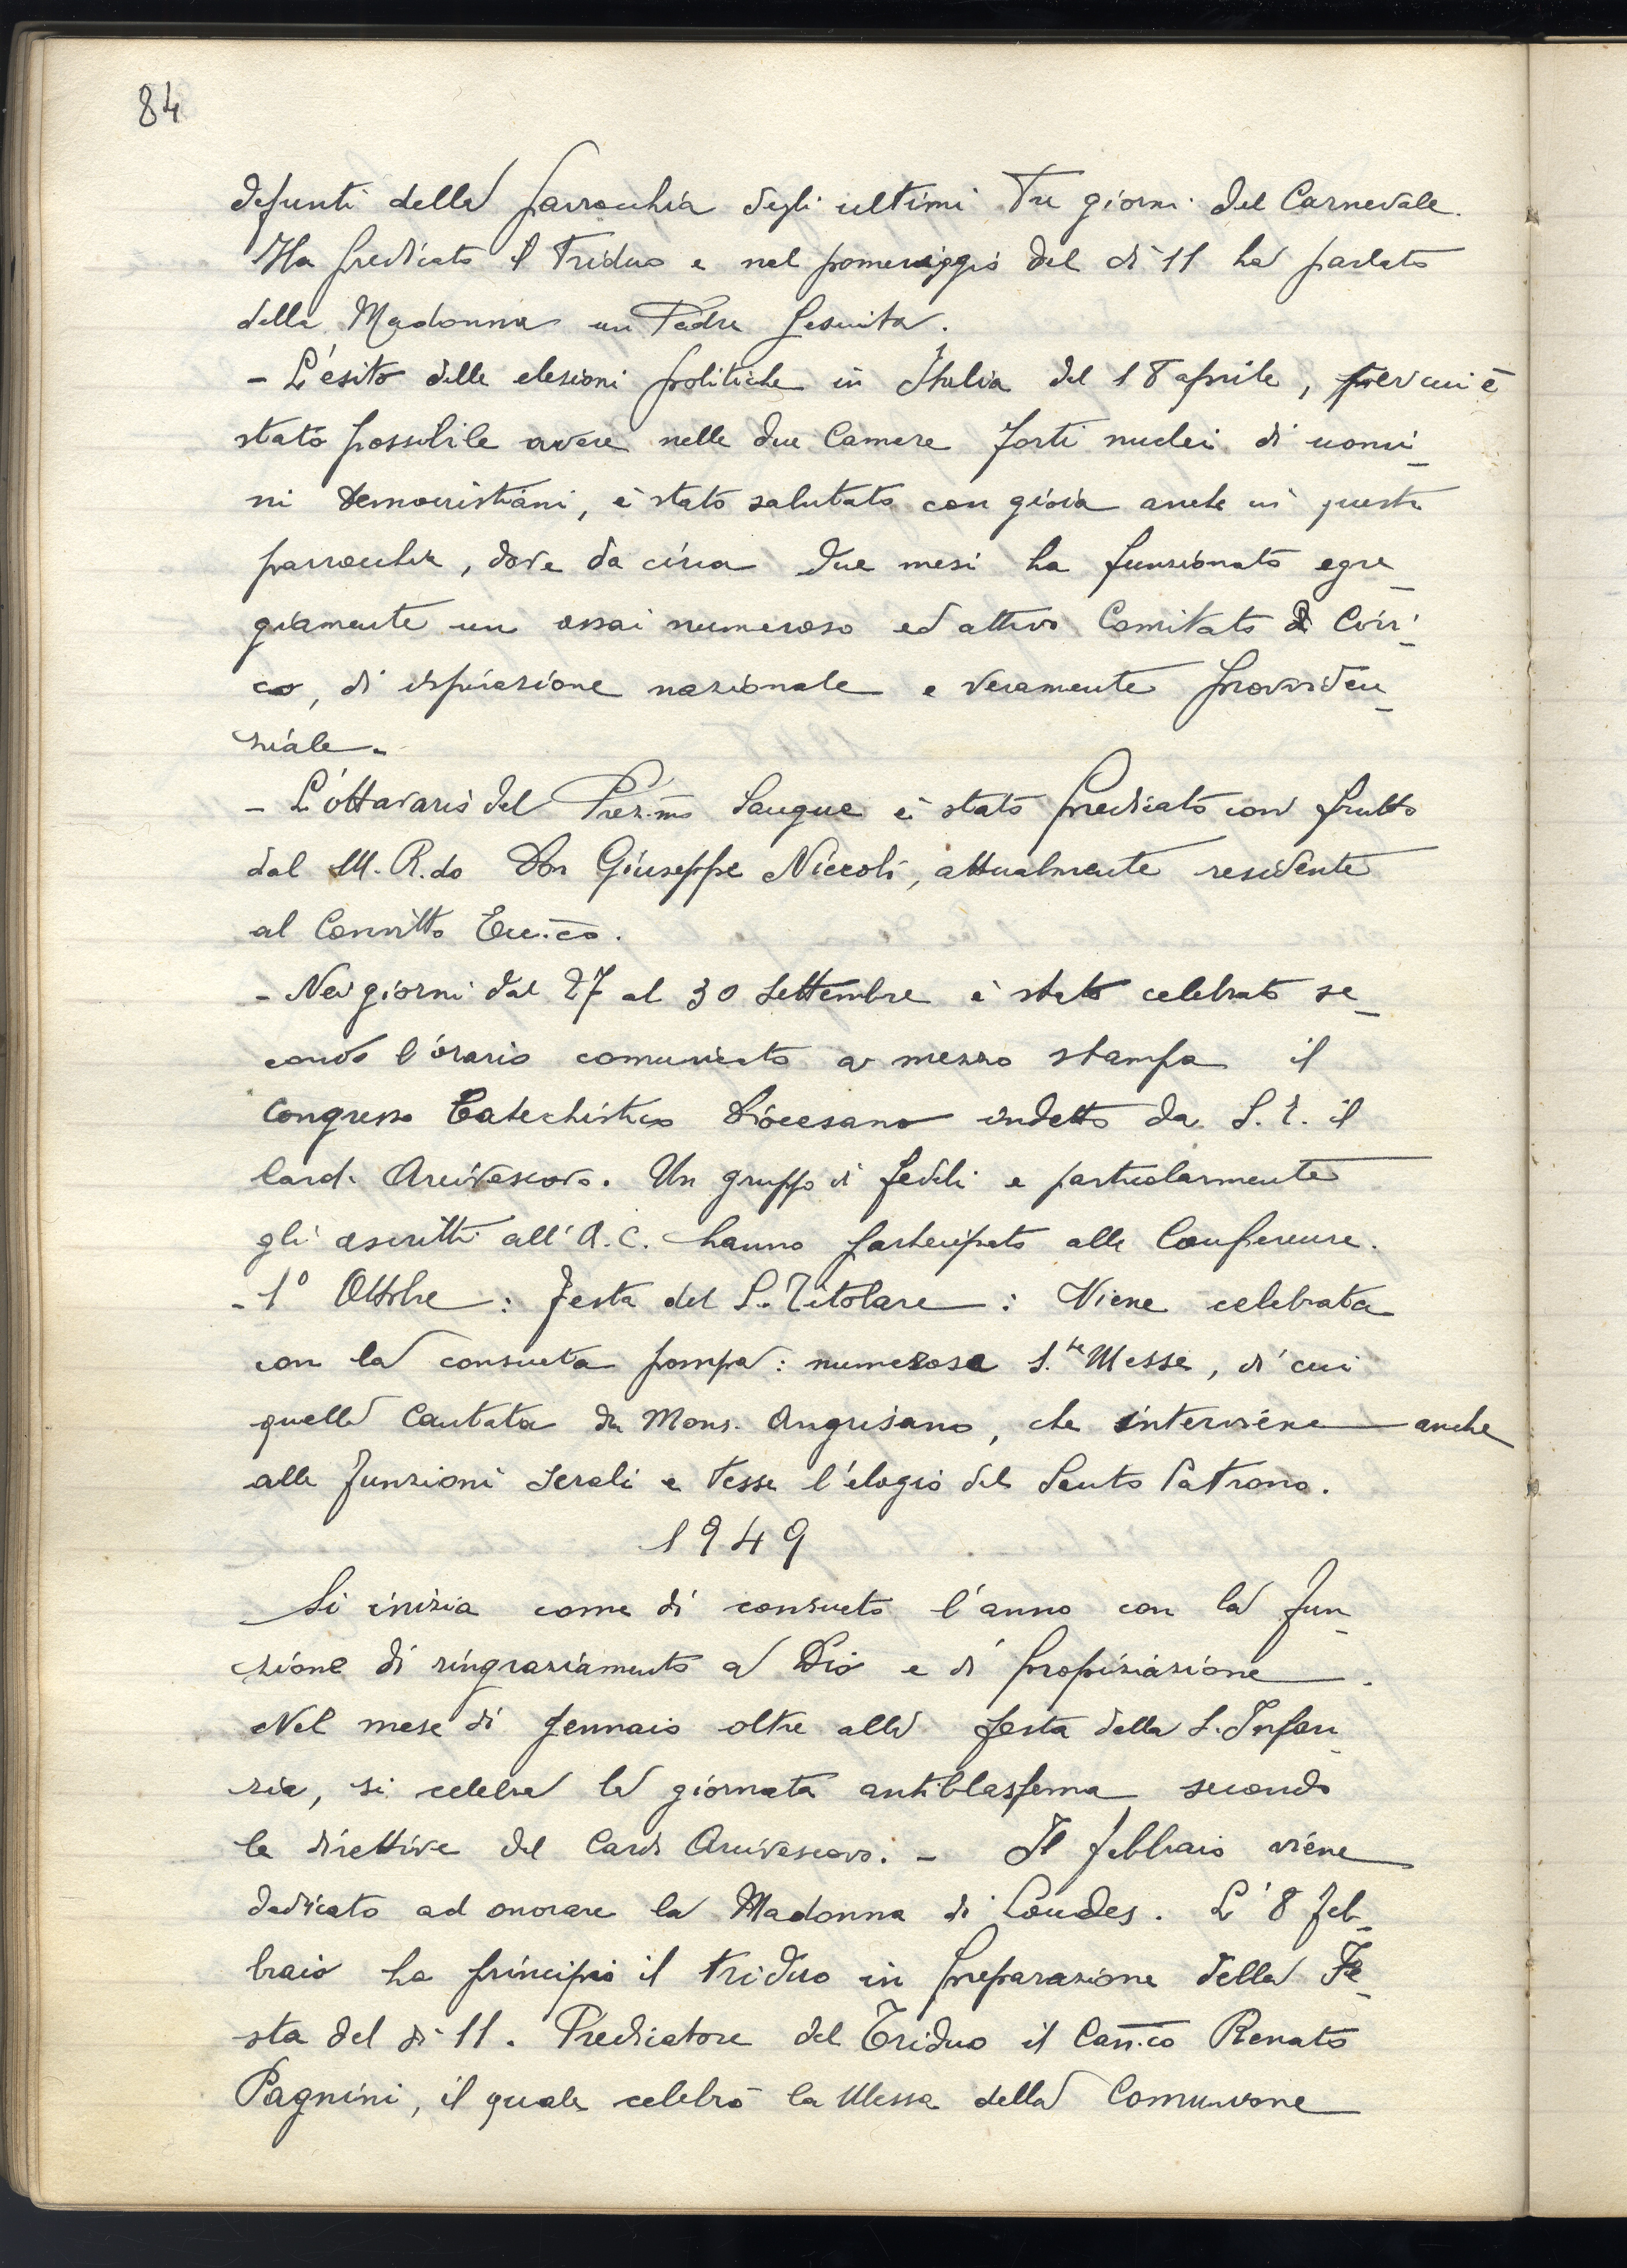 84
defunti della parrocchia degli ultimi tre giorni del Carnevale.
Ha predicato il Triduo e nel pomeriggio del dì 11 ha parlato
della Madonna un Padre Gesuita.
- L'esito delle elezioni politiche in Italia del 18 aprile, per cui è
stato possibile avere nelle due Camere forti nuclei di uomi_
ni Democristiani, è stato salutato con gioia anche in questa
parrocchia, dove da circa due mesi ha funzionato egre_
giamente un assai numeroso ed attivo Comitato Civi_
co, di ispirazione nazionale e veramente provviden_
ziale.
- L'ottavario del Prez.mo Sangue è stato predicato con frutto
dal M. R.do Don Giuseppe Niccoli, attualmente residente
al Convitto Ecc.co.
- Nei giorni dal 27 al 30 Settembre è stato celebrato se_
condo l'orario comunicato a mezzo stampa il
Congresso Catechistico Diocesano indetto da S. E. il
Card. Arcivescovo. Un gruppo di fedeli e particolarmente
gli ascritti all'A.C. hanno partecipato alle Conferenze.
- 1° Ottobre: Festa del S. Titolare: Viene celebrata
con la consueta pompa: numerose S.te Messe, di cui
quella Cantata da Mons. Angrisano, che interviene anche
alle funzioni serali e tesse l'elogio del Santo Patrono.
1949
Si inizia come di consueto l'anno con la fun_
zione di ringraziamento a Dio e di propiziazione.
Nel mese di Gennaio oltre alla festa della S. Infan_
zia, si celebra la giornata antiblasfema secondo
le direttive del Card Arcivescovo. - Il febbraio viene
dedicato ad onorare la Madonna di Loudes. L'8 feb_
braio ha principio il triduo in preparazione della Fe_
sta del dì 11. Predicatore del Triduo il Can.co Renato
Pagnini, il quale celebrò la Messa della Comunione